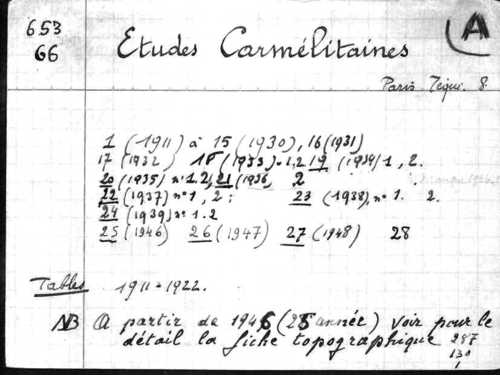 653
66
Etudes Carmélitaines
A
Paris Téqui. 8
1 (1911) à 15 (1930), 16 (1931)
17 (1932) 18 (1933) n. 1, 2 19 (1934) 1, 2.
20 (1935) n° 1. 2, 21 (1936, 2
22 (1937) n° 1, 2 : 23 (1938), n° 1. 2.
24 (1939) n° 1. 2
25 (1946) 26 (1947) 27 (1948) 28
Tables 1911-1922.
NB A partir de 1946 (25 année) voir pour le
détail la fiche topographique
287
130
1